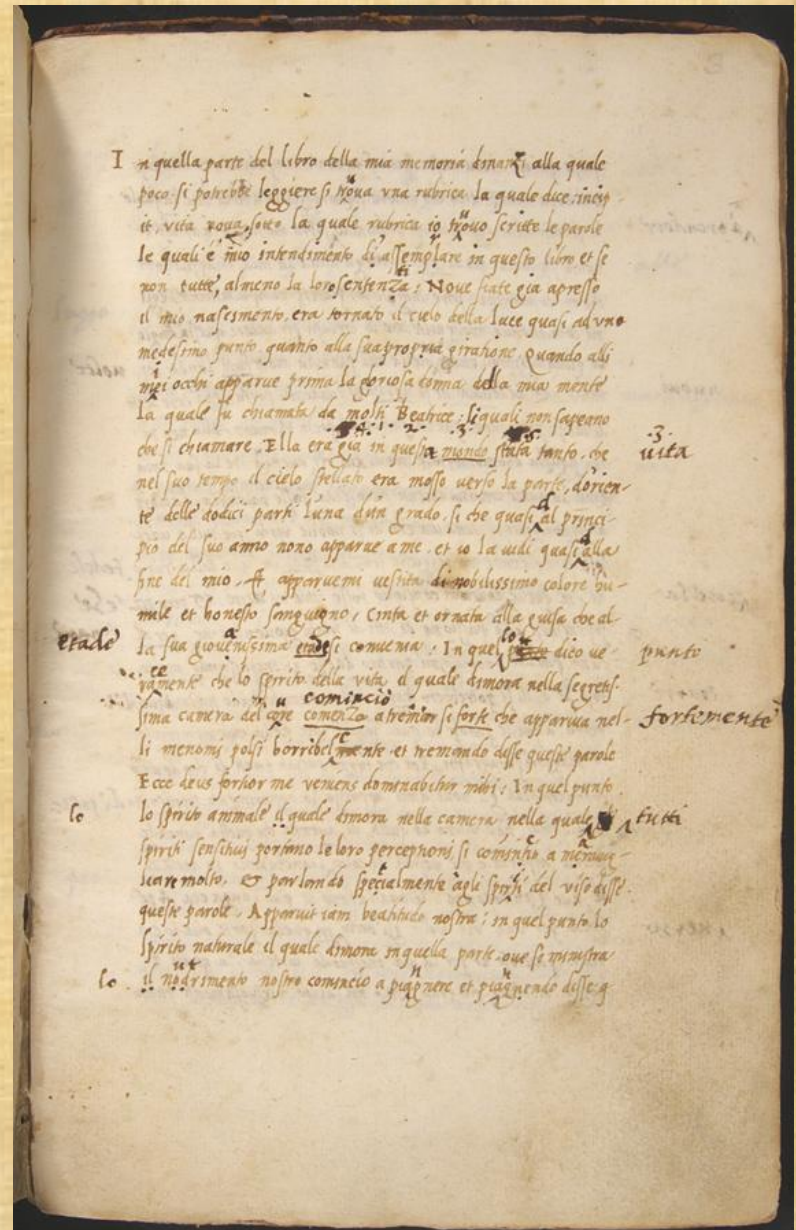 In quella parte del libro della mia memoria dinanzi alla quale
poco si potrebbe leggiere si truova vna rubrica la quale dice. incip-
it. vita noua, sotto la quale rubrica io truovo scritte le parole
le quali é mio intendimento di assemplare in questo libro et se
non tutte, almeno la loro sententia: Noue fiate gia apresso
il mio nascimento. era tornato il cielo della luce quasi ad vno
medesimo punto quanto alla sua propria giratione Quando alli
miei occhi apparue prima la gloriosa donna della mia mente
la quale fu chiamata da molti Beatrice: li quali non sapeano
che si chiamare. Ella era gia in questa mondo stata tanto. che uita
nel suo tempo il cielo stellato era mosso verso la parte, dorien-
te delle dodici parti luna dun grado. si che quasi dal princi-
pio del suo anno nono apparue a me. et io la uidi quasi dalla
fine del mio. Et apparuemi uestita di nobilissimo colore hu-
mile et honesto sanguigno, cinta et ornata alla guisa che al-
etade la sua giouanissima etade si conuenia: In quel dico ve- punto
ramente che lo spirito della vita il quale dimora nella segretis-
cominció
sima camera del cuore comenzo a tremar si forte che appariua nel- fortemente
li menomi polsi horribelmente et tremando disse queste parole
Ecce deus fortior me veniens dominabitur mihi: In quel punto.
lo lo spirito animale il quale dimora nella camera nella quale tutti
spiriti sensitiui portano le loro perceptioni si cominció a marauig-
liare molto. & parlando spetialmente agli spiriti del viso disse.
queste parole. Apparuit iam beatitudo nostra: in quel punto lo
spirito naturale il quale dimora in quella parte. oue se ministra
lo. il nudrimento nostro comincio a piangnere et piangnendo disse. q